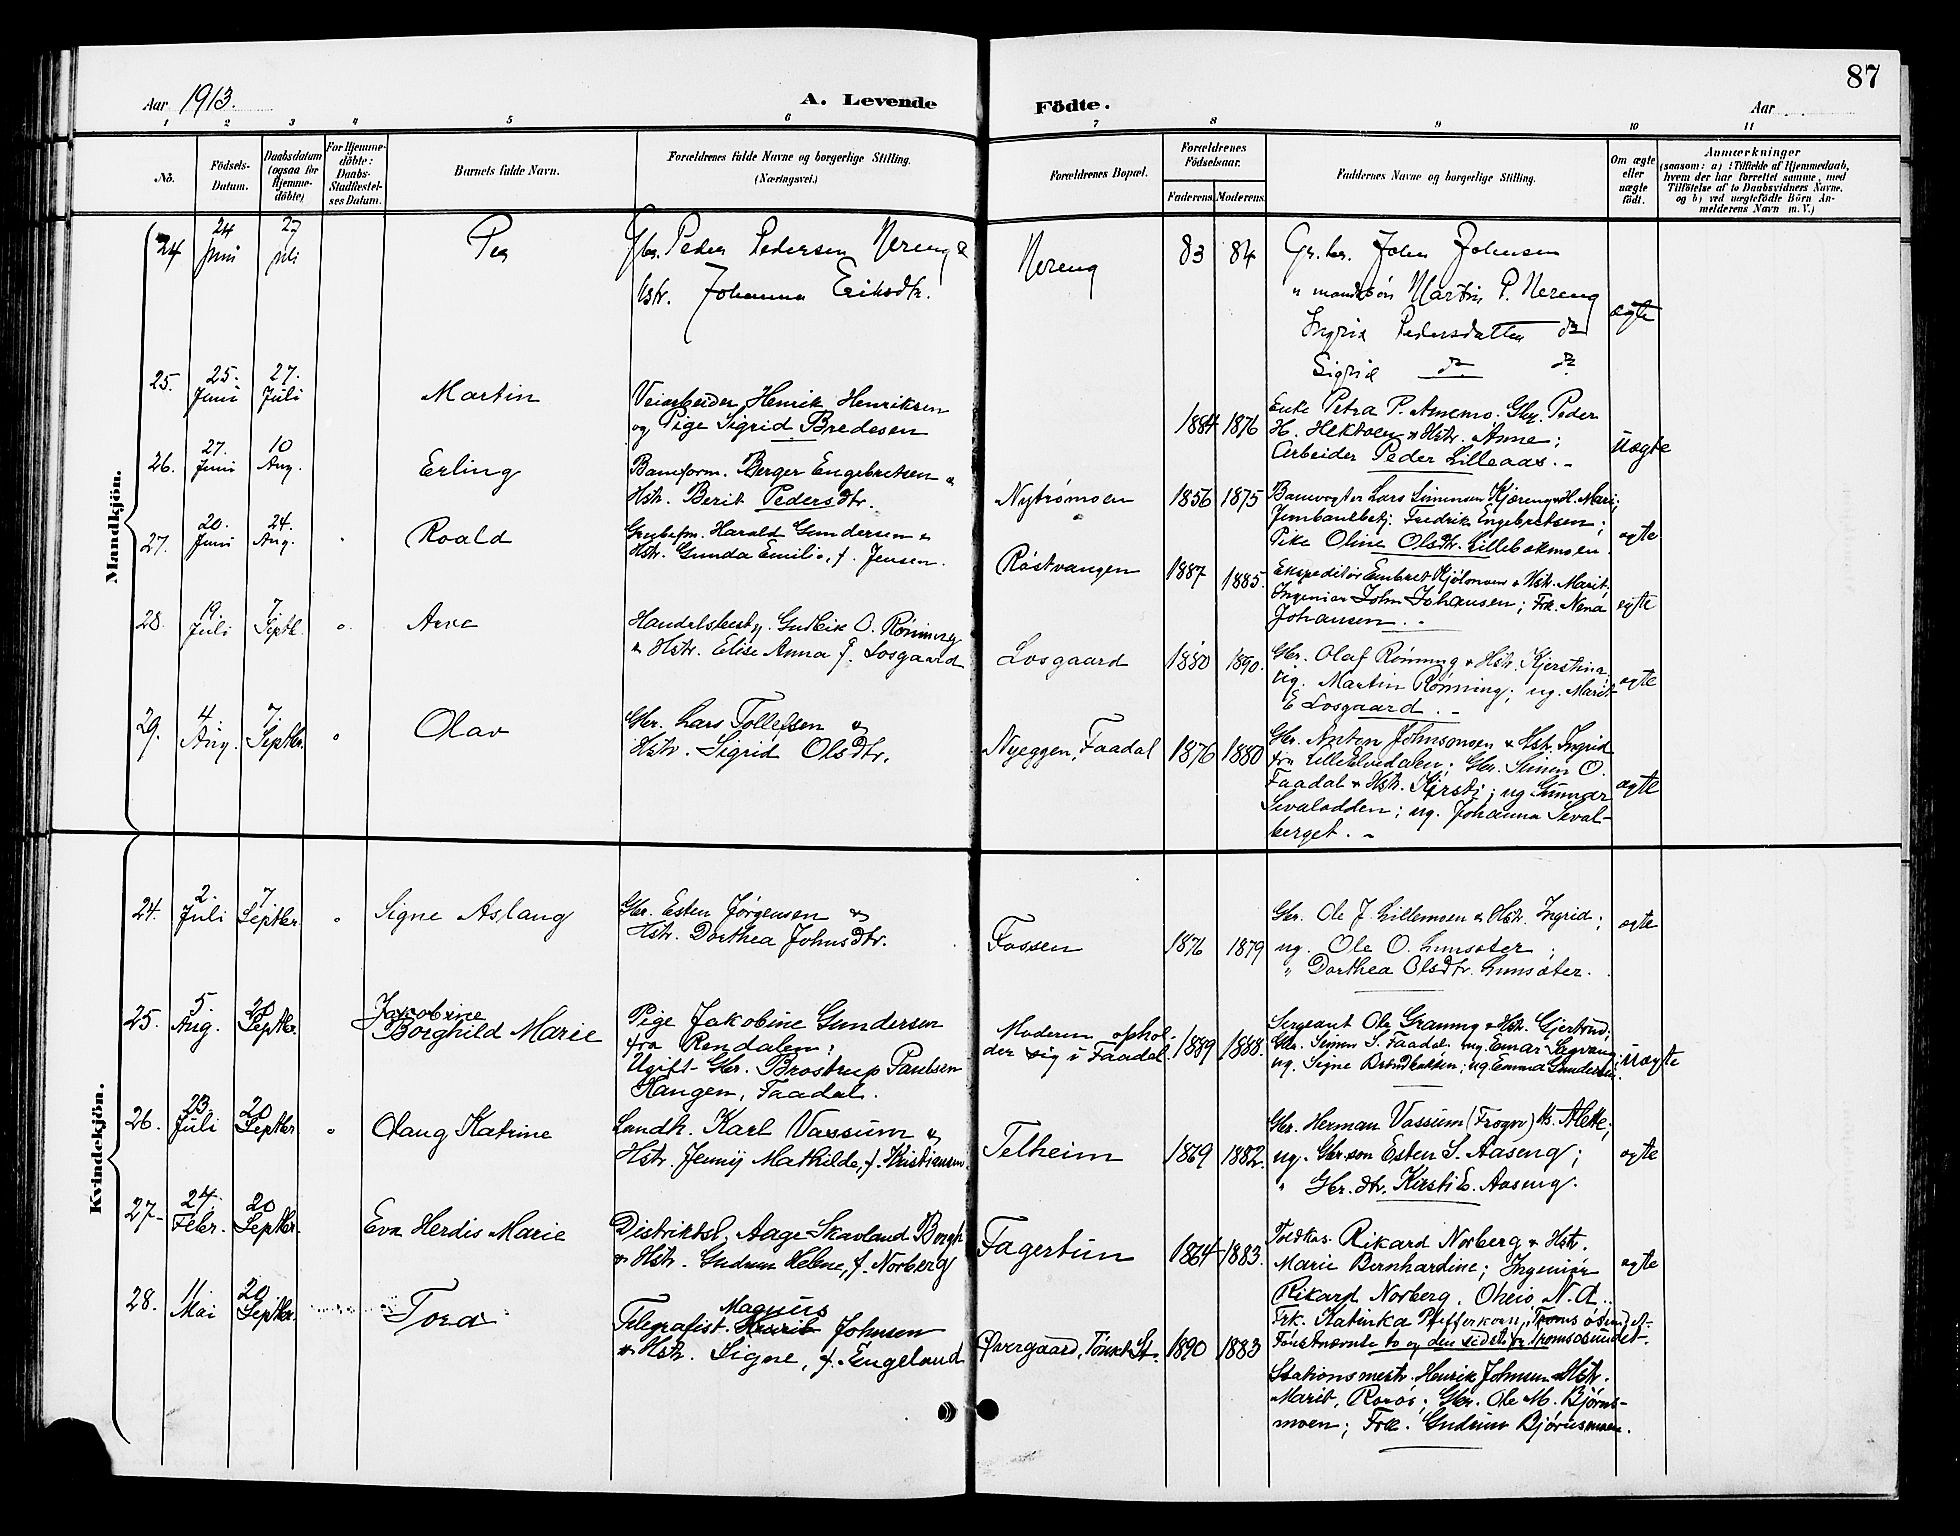 87
Aar 1913.
A. Levende Födte.
Aar
1 2 3 4 5 6 7 8 9 10 11
No.
Födsels-Datum.
Daabsdatum (ogsaa for Hjemmedöbte)
For Hjemmedöbte: Daabs-Stadfæstelses Datum.
Barnets fulde Navn.
Forældrenes fulde Navne og borgerlige Stilling. (Næringsvei.)
Forældrenes Bopæl.
Forældrenes Födselsaar.
Faderens. Moderens.
Faddernes Navne og borgerlige Stilling.
Om ægte eller uægte födt.
Anmærkninger
(saasom: a) i Tilfælde af Hjemmedaab, hvem der har forrettet samme, med Tilföielse af to Daabsvidners Navne, og b) ved uægtefödte Börn Anmelderens Navn m. V.)
Mandkjön.
24 24 Juni 27 juli
Per
Gbr. Peder Pedersen Nereng &
Hstr. Johanna Eriksdtr.
Nereng
83 84
Gr. br. John Johnsen
" mandssön Martin P. Nereng
Ingrid Pedersdatter do
Sigrid do do
ægte
25. 25. Juni 27. Juli
Martin
Veiarbeider Henrik Henriksen
og Pige Sigrid Bredesen
1884 1876
Enke Petra P. Anemo. Gbr. Peder
H. Hektoen & Hstr. Anne;
Arbeider Peder Lilleaas. -
uægte
26. 27. Juni 10 Aug.
Erling
Baneform. Berger Engebretsen &
Hstr. Berit Pedersdtr.
Nytrømoen
1856 1875
Banevogter Lars Simensen Kjæreng & H. Mari;
Jernbanebetj. Fredrik Engebretsen;
Pike Oline Olsdtr. Lillebakmoen
ægte
27. 20. Juni 24. Aug.
Roald
Grubefm. Harald Gundersen &
Hstr. Gunda Emilie, f. Jensen.
Røstvangen
1887 1885.
Ekspeditør Embret Kjølomoen & Hstr. Marit;
Ingeniør John Johansen; Frk. Nena
Johansen. -
ægte
28. 19. Juli 7 Septb.
Arne
Handelsbesty. Gudleik O. Rønning
& Hstr. Elise Anna f. Losgaard
Losgaard
1880 1890.
Gbr. Olaf Rønning & Hstr. Kjerstina,
ug. Martin Rønning; ug. Marit
E Losgaard. -
ægte
29. 4. Aug. 7 Septbr.
Olav
Gbr. Lars Tollefsen &
Hstr. Sigrid Olsdtr.
Nyeggen, Faadal
1876 1880
Gbr. Anton Johnsmoen & Hstr. Ingrid
fra Lilleelvedalen; Gbr. Simen O.
Faadal & Hstr. Kjersti; ug Gunnar
Sivalodden; ug. Johanna Sival-
berget. -
ægte
Kvindekjön.
24. 2. Juli 7 Septbr
Signe Aslaug
Gbr. Esten Jørgensen &
Hstr. Dorthea Johnsdtr.
Fossen
1876 1879
Gbr. Ole J. Lillemoen & Hstr. Ingrid;
ug. Ole O. Lunsæter;
" Dorthea Olsdtr. Lunsæter.
ægte
25. 5 Aug. 20 Septbr
Jakobine
Borghild Marie
Pige Jakobine Gundersen
fra Rendalen;
Ugift Gbr. Brostrup Paulsen
Hangen, Faadal.
Moderen ophol-
der sig i Faadal
1889 1888.
Sergeant Ole Granmg & Hstr. Gjertrud;
Gbr. Simen S. Faadal ug. Einar
ug. Signe ug Emma Gundersen.
uægte
26. 23. Juli 20 Septbr
Olaug Katrine
Landh. Karl Vassum &
Hstr. Jenny Mathilde, f. Kristiansen.
Telheim
1869 1882.
Gbr. Herman Vassum (Frogn) Hs. Alette;
ug. Gbr.søn Esten S. Aaseng;
" Gbr. dtr. Kirsti E. Aaseng.
ægte
27- 24. Febr. 20 Septbr.
Eva Herdis Marie
Distriktsl. Aage Skavland Bergh
& Hstr. Gudrun Helene, f. Norberg
Fagertun
1864 1883.
Toldkas. Rikard Norberg & Hstr.
Marie Bernhardine; Ingeniør
Rikard Norberg, Oheio N. A.
Frk. Katinka Pfefferkorn, Tromsøsund. -
Førstnævnte to og den sidste fr. Tromsøsundet. -
ægte
28. 11 Mai 20 Septbr.
Tora
Telegrafist. Magnus Henrik Johnsen
& Hstr. Signe, f. Engeland
Øvergaard, Tönset St.
1890 1883
Stationsmestr. Henrik Johnsen & Hstr.
Marit, Røros; Gbr. Ole M. Bjørns-
moen; Frk. Gudrun Bjørnsmoen.